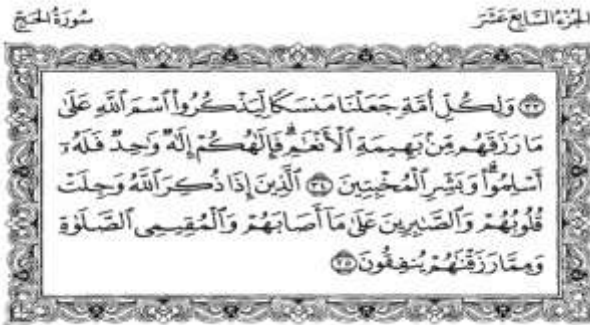 الجزء السابع عشر
سورة الحج
﴿٣٣﴾ وَلِكُلِّ أُمَّةٍ جَعَلْنَا مَنسَكًا لِّيَذْكُرُوا۟ ٱسْمَ ٱللَّهِ عَلَىٰ
مَا رَزَقَهُم مِّنۢ بَهِيمَةِ ٱلْأَنْعَـٰمِ ۗ فَإِلَـٰهُكُمْ إِلَـٰهٌ وَٰحِدٌ فَلَهُۥٓ
أَسْلِمُوا۟ ۗ وَبَشِّرِ ٱلْمُخْبِتِينَ ﴿٣٤﴾ ٱلَّذِينَ إِذَا ذُكِرَ ٱللَّهُ وَجِلَتْ
قُلُوبُهُمْ وَٱلصَّـٰبِرِينَ عَلَىٰ مَآ أَصَابَهُمْ وَٱلْمُقِيمِى ٱلصَّلَوٰةِ
وَمِمَّا رَزَقْنَـٰهُمْ يُنفِقُونَ ﴿٣٥﴾